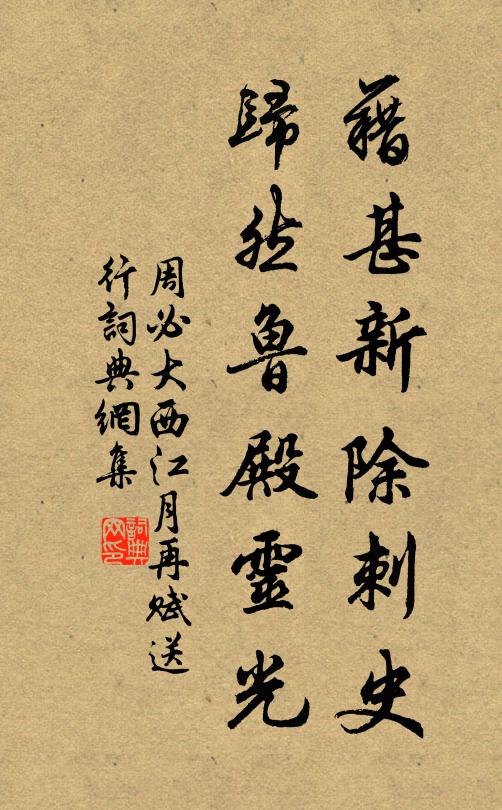 藉甚新除刺史
歸然魯殿靈光
周必大西江月再赋送
行詞典網集
詞典
网印